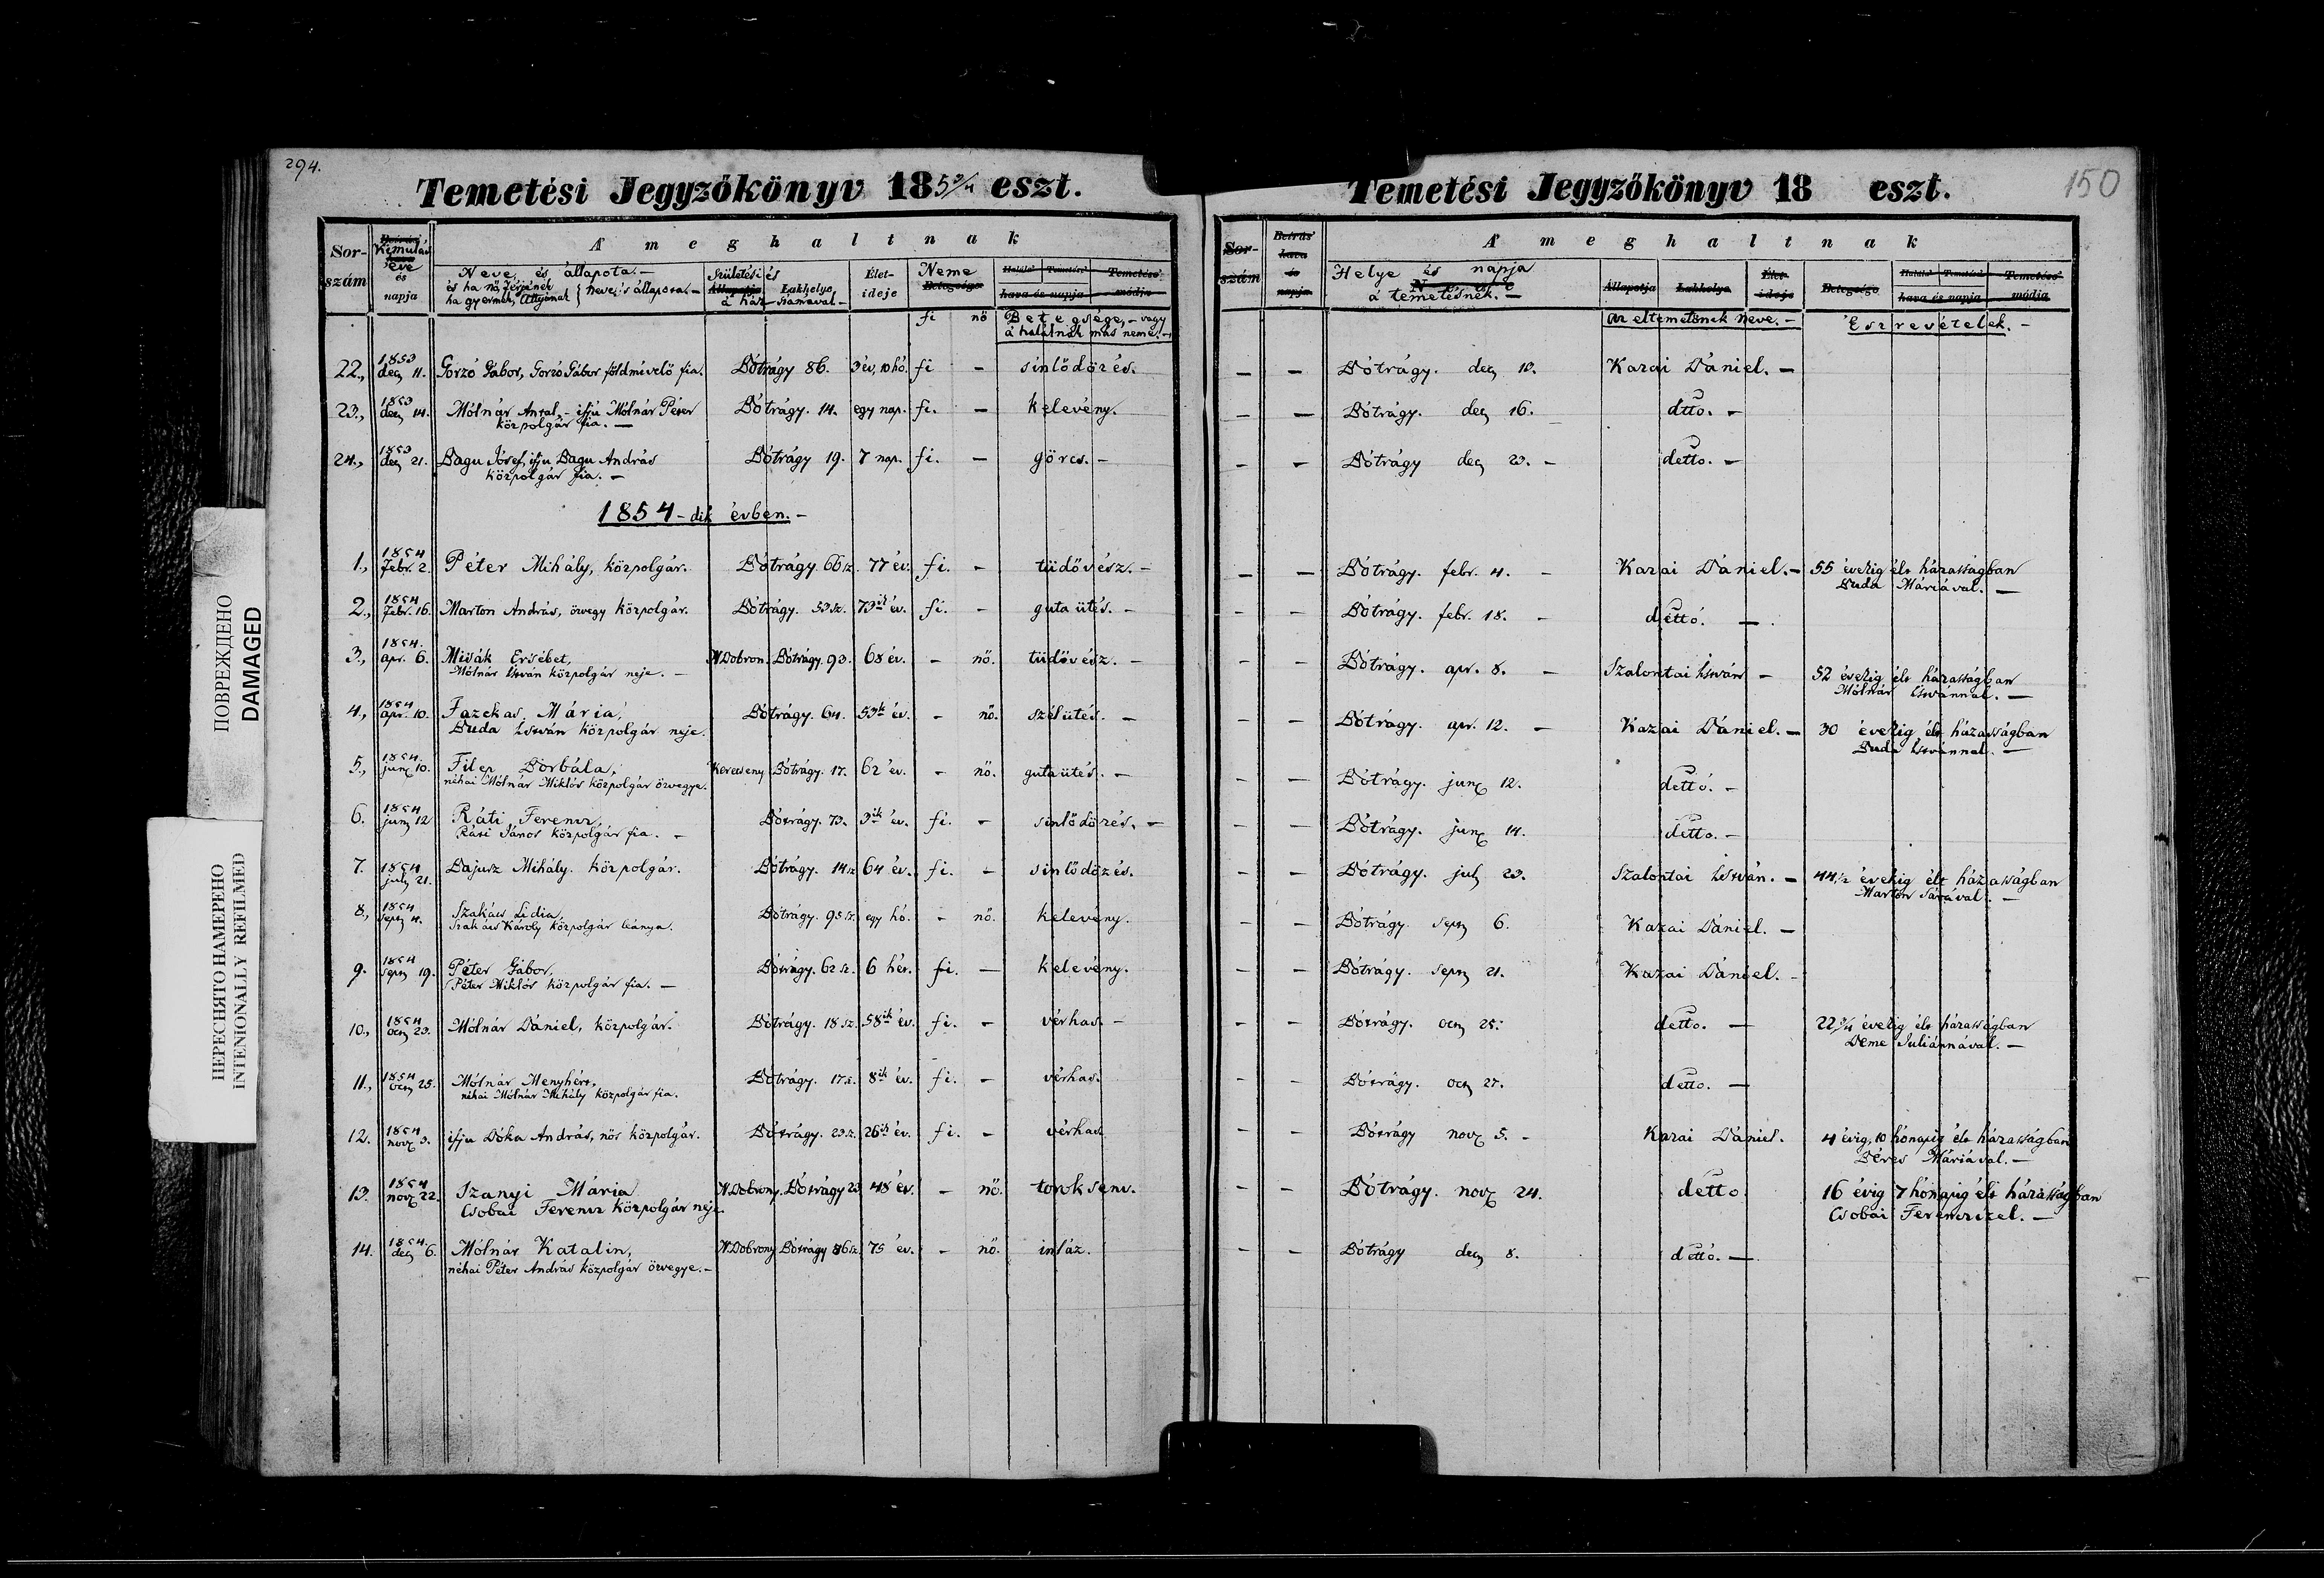 294.
Temetési Jegyzőkönyv 185¾ eszt.
Sor-szám
Kimulás éve és napja
A' meghaltnak
Neve, és állapota. –
és ha nő, férjének
ha gyermek, Attyának } neve, 's állapota. –
Születési és Lakhelye
á ház-számával –
Élet-ideje
Neme
fi nő
Betegsége, – vagy
á halálnak más neme. –
22., 1853 dec. 11. Gorzó Gábor, Gorzó Gábor földmívelő fia. Bótrágy 86. 3 év, 10 hó. fi – sinlődözés.
23., 1853 dec. 14. Mólnár Antal, – ifju Mólnár Péter
közpolgár fia. – Bótrágy. 14. egy nap. fi. – kelevény.
24., 1853 dec. 21. Bagu Jósef, ifju Bagu András
közpolgár fia. – Bótrágy 19. 7 nap. fi. – görcs. –
1854-dik évben. –
1., 1854 febr. 2. Péter Mihály, közpolgár. Bótrágy. 66 sz. 77 év. fi. – tüdővész. –
2., 1854 febr. 16. Marton András, özvegy közpolgár. Bótrágy. 53 sz. 73ik év. fi. – guta ütés. –
3., 1854. apr. 6. Misák Ersébet,
Mólnár István közpolgár neje. – N.Dobron. Bótrágy. 93. 68 év. – nő. tüdővész. –
4., 1854 apr. 10. Fazekas Mária,
Buda István közpolgár neje. Bótrágy. 64. 53ik év. – nő. szélütés. –
5., 1854. jun. 10. Filep Borbála,
néhai Mólnár Miklós közpolgár özvegye. Kerecseny Bótrágy. 17. 62 év. – nő. gutaütés. –
6. 1854 jun. 12 Ráti Ferencz,
Ráti János közpolgár fia. – Bótrágy. 73. 3ik év. fi. – sinlődözés. –
7. 1854 july 21. Bajusz Mihály. közpolgár. Bótrágy. 14 sz 64 év. fi. – sinlődözés.
8., 1854 sept. 4. Szakács Lidia,
Szakács Károly közpolgár leánya. Bótrágy. 95 sz. egy hó. – nő. kelevény.
9. 1854 sept. 19. Péter Gábor,
Péter Miklós közpolgár fia. – Bótrágy. 62 sz. 6 hét. fi. – kelevény.
10., 1854 oct. 23. Mólnár Dániel, közpolgár. Bótrágy. 18 sz. 58ik év. fi. – vérhas. –
11., 1854 oct. 25. Mólnár Menyhért,
néhai Mólnár Mihály közpolgár fia. Bótrágy. 17 s. 8ik év. fi. – vérhas.
12. 1854 nov. 3. ifju Dóka András, nős közpolgár. Bótrágy. 23 sz. 26ik év. fi. – vérhas.
13. 1854 nov. 22. Szanyi Mária
Csobai Ferencz közpolgár neje N.Dobrony. Bótrágy 23 48 év. – nő. torok senv.
14. 1854. dec. 6. Mólnár Katalin,
néhai Péter András közpolgár özvegye. – N.Dobrony Bótrágy 86 sz. 75 év. – nő. inláz.
Temetési Jegyzőkönyv 18 eszt.
150
Sor-szám
Beirás' hava és napja
A' meghaltnak
Helye és napja
á temetésnek. –
az eltemetőnek neve. –
Eszrevételek. –
– – Bótrágy. dec. 13. Kazai Dániel. –
– – Bótrágy. dec. 16. dtto. –
– – Bótrágy dec. 23. – detto. –
– – Bótrágy. febr. 4. – Kazai Dániel. – 55 évekig élt házasságban
Buda Máriával. –
– – Bótrágy. febr. 18. – dettó. –
– – Bótrágy. apr. 8. – Szalontai István – 52 évekig élt házasságban
Mólnár Istvánnal. –
– – Bótrágy. apr. 12. – Kazai Dániel. – 30 évekig élt házasságban
Buda Istvánnal. –
– – Bótrágy. jun. 12. dettó. –
– – Bótrágy. jun. 14. detto. –
– – Bótrágy. july 23. Szalontai István. – 44½ évekig élt házasságban
Marton Sárával. –
– – Bótrágy. sept. 6. Kazai Dániel. –
– – Bótrágy. sept. 21. Kazai Dániel. –
– – Bótrágy. oct. 25. detto. – 22¾ évekig élt házasságban
Deme Juliánnával. –
– – Bótrágy. oct. 27. detto. –
– – Bótrágy nov. 5. – Kazai Dániel. 4 évig, 10 hónapig élt házasságban
Béres Máriával. –
– – Bótrágy. nov. 24. detto 16 évig 7 hónapig élt házasságban
Csobai Ferenczczel. –
– – Bótrágy dec. 8. dettó. –
ПОВРЕЖДЕНО
DAMAGED
ПЕРЕСНЯТО НАМЕРЕНО
INTENIONALLY REFILMED